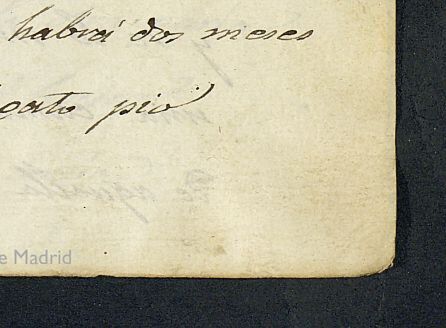 habrá dos meses
gato pio
e Madrid